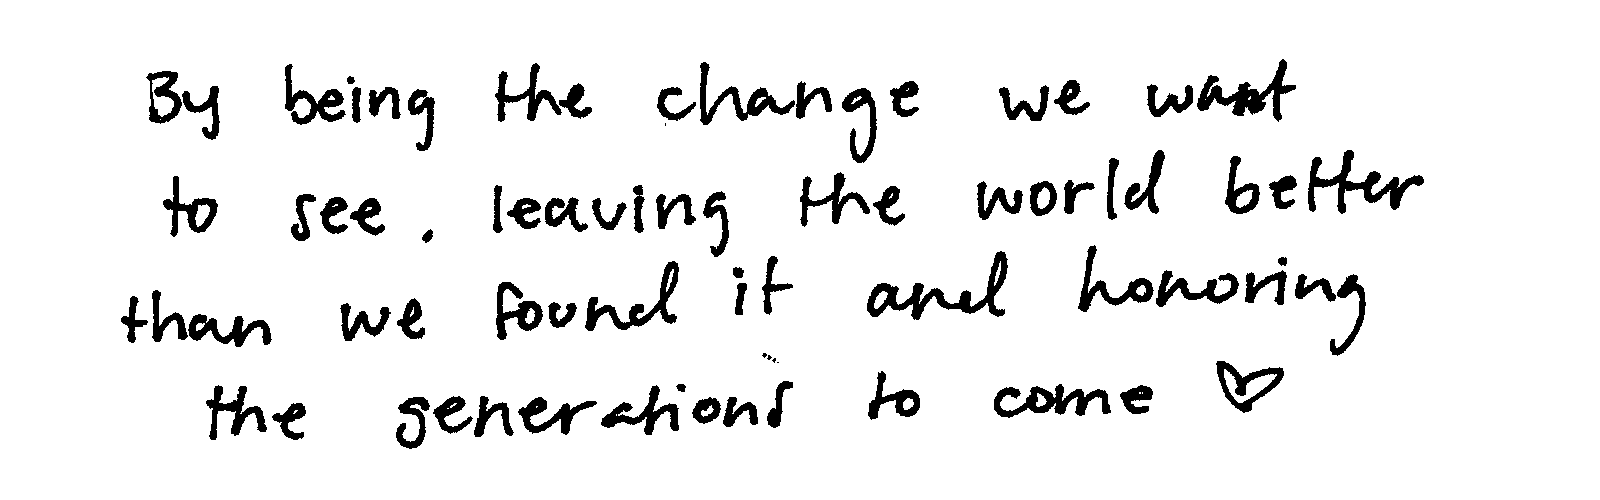 By being the change we want
to see. leaving the world better
than we found it and honoring
the generations to come ♡